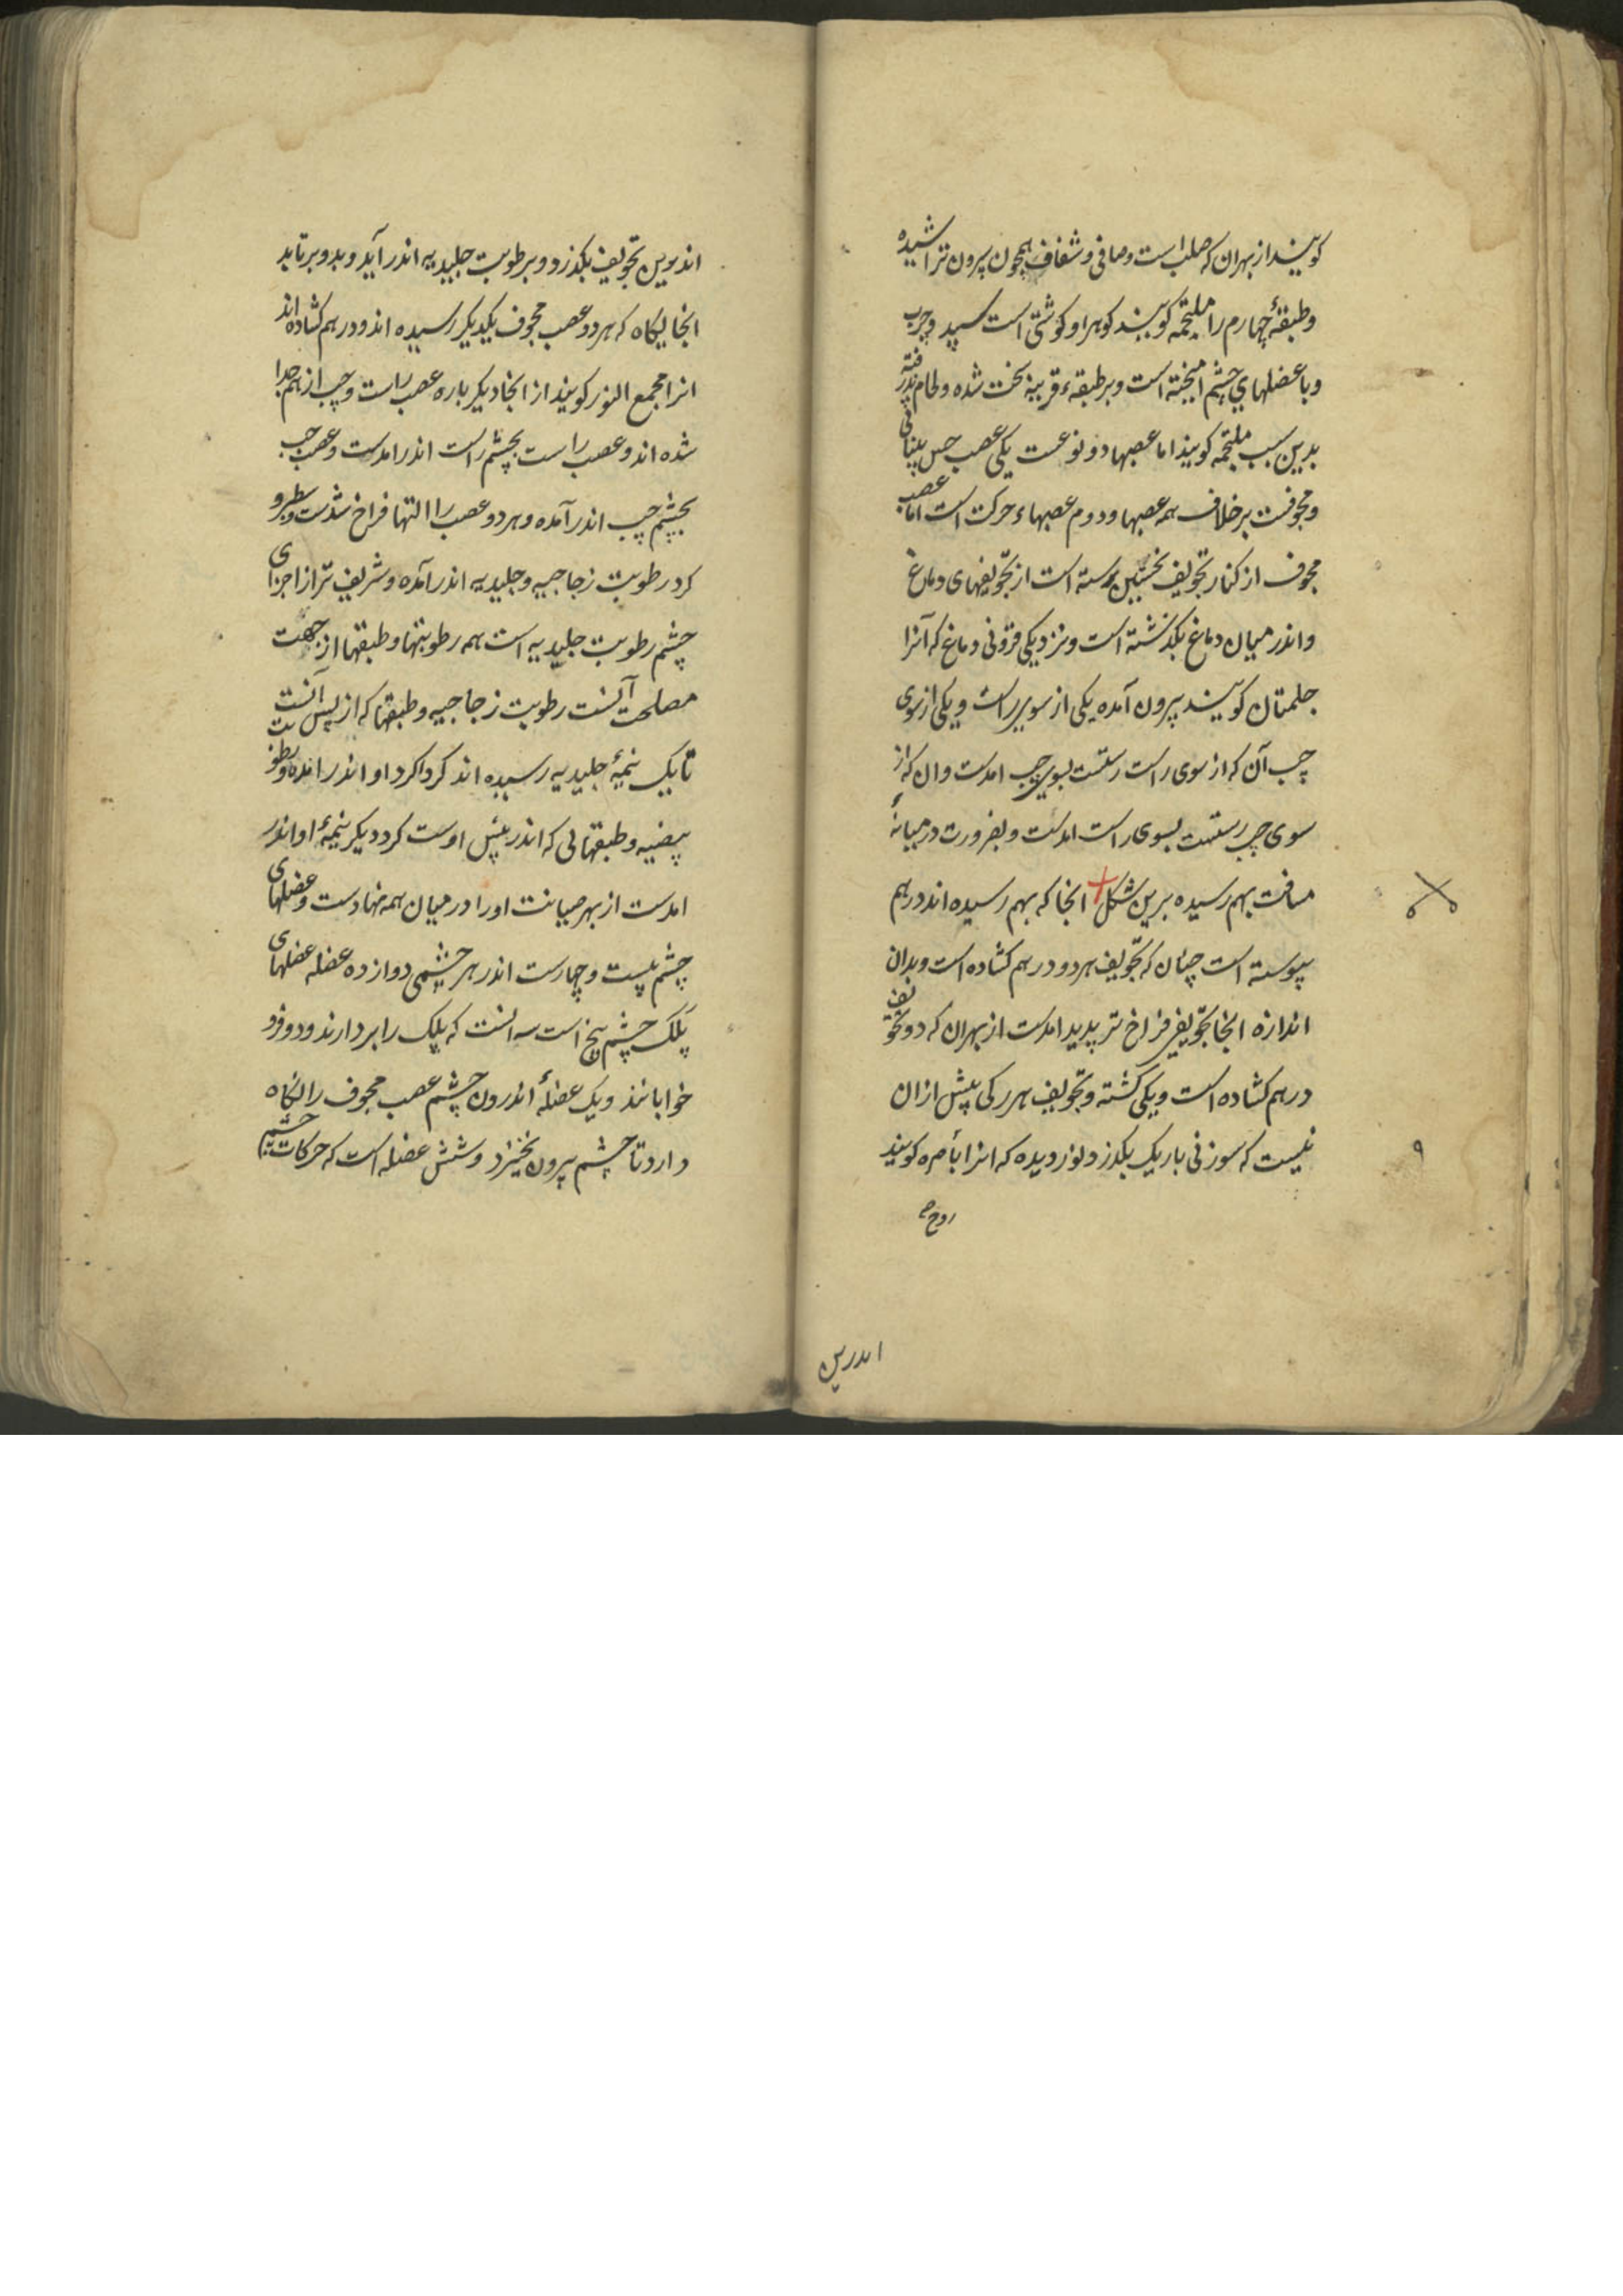 کویند از بهر ان که صلب است و صافی و شفاف همچون سرون تراشیده
و طبقهٔ چهارم را ملتحمه کویند کوهر او کوشتی است سپید و چرب
و با عضلهای چشم امیخته است و بر طبقهٔ قرنیه سخت شده و لحام پذیرفته
بدین سبب ملتحمه کویند اما عصبها دو نوعست یکی عصب حس بینائی
و مجوفست بر خلاف همه عصبها و دوم عصبهاء حرکت است اما عصب
مجوف از کنار تجویف نخستین رسته است از تجویفهای دماغ
و اندر میان دماغ بکذشته است و نزدیکی فزونی دماغ که آنرا
حلمتان کویند بیرون آمده یکی از سوی راست و یکی از سوی
چپ آن که از سوی راست رستست بسوی چپ امدست و ان که از
سوی چپ رستست بسوی راست امدست و بضرورت در میانهٔ
مسافت بهم رسیده برین شکل + انجا که بهم رسیده اند در هم
پیوسته است چنان که تجویف هر دو در هم کشاده است و بدان
اندازه انجا تجویفی فراخ تر پدید امدست از بهر ان که دو تجویف
در هم کشاده است و یکی کشته و تجویف هر یکی بیش از ان
نیست که سوزنی باریک بکذرد و نور دیده که انرا باصره کویند
۹
روح
اندرین
اندرین تجویف بکذرد و بر طوبت جلیدیه اندر آید و بدو برتابد
انجایکاه که هر دو عصب مجوف یکدیکر رسیده اند و در هم کشاده اند
انرا مجمع النور کویند از انجا دیکر باره عصب راست و چپ از هم جدا
شده اند و عصب راست بچشم راست اندر امدست و عصب چپ
بچشم چپ اندر آمده و هر دو عصب را التها فراخ شدست و سطبر و
کرد رطوبت زجاجیه و جلیدیه اندر آمده و شریف تر از اجزای
چشم رطوبت جلیدیه است همه رطوبتها و طبقها از جهت
مصلحت آنست رطوبت زجاجیه و طبقها که از پس آنست
تا یک نیمهٔ جلیدیه رسیده اند کرداکرد او اندر امده و رطوبت
بیضیه و طبقهائی که اندر پیش اوست کرد دیکر نیمهٔ او اندر
امدست از بهر صیانت او را در میان همه نهادست و عضلهای
چشم بیست و چهارست اندر هر چشمی دوازده عضله عضلهای
پلک چشم پنج است سه انست که پلک را بردارند و دو فرد
خوابانند و یک عضلهٔ اندرون چشم عصب مجوف را نکاه
دارد تا چشم بیرون نخیزد و شش عضله است که حرکات چشم